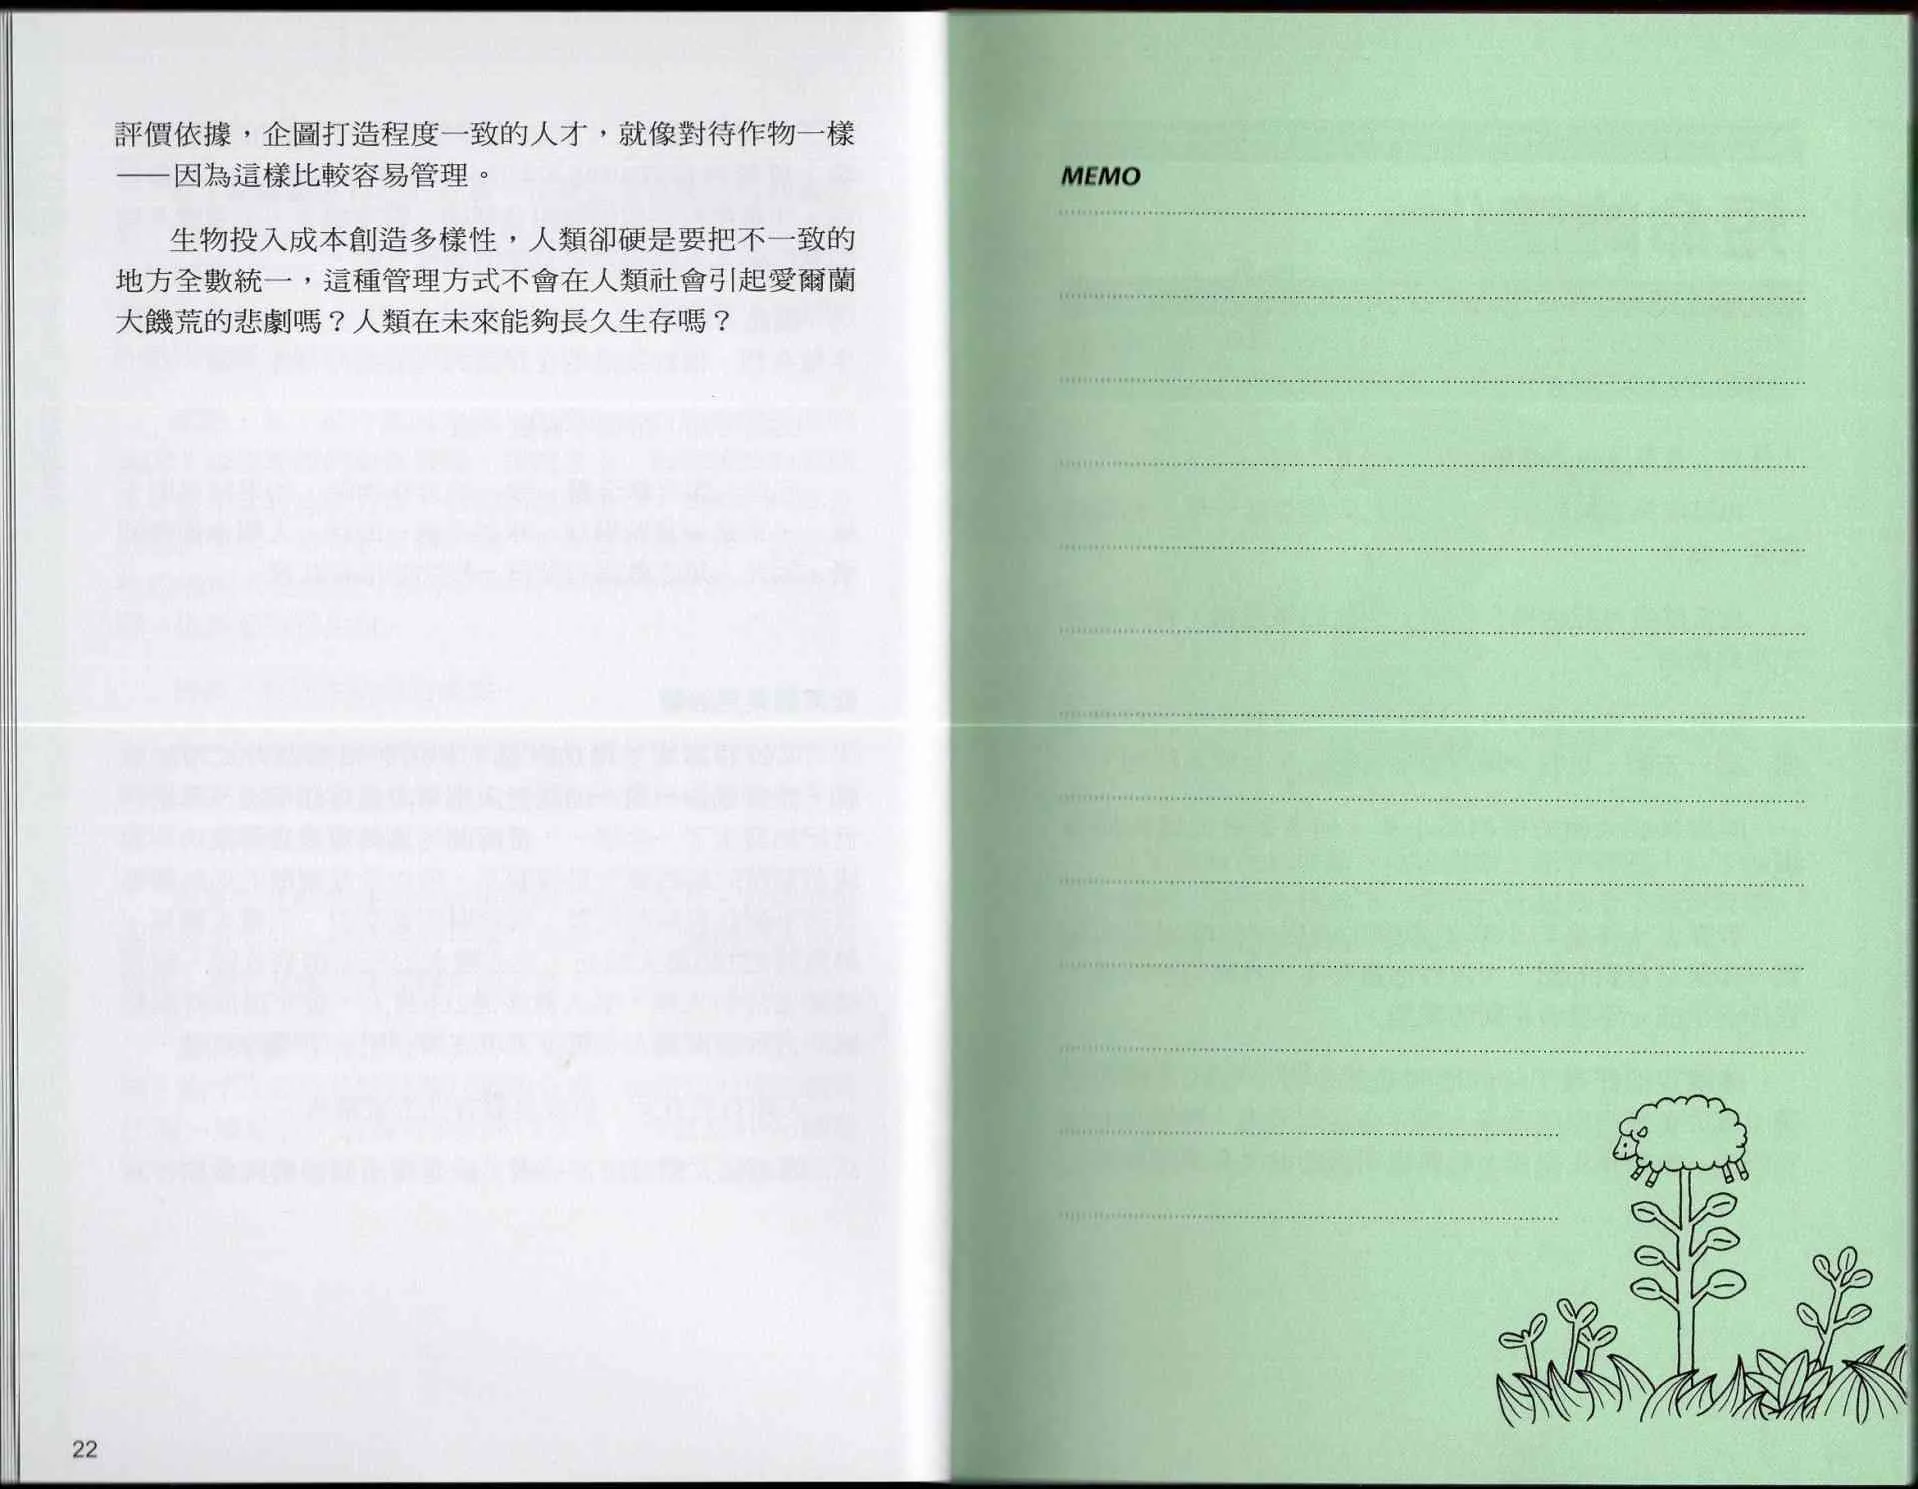 評價依據，企圖打造程度一致的人才，就像對待作物一樣
——因為這樣比較容易管理。
生物投入成本創造多樣性，人類卻硬是要把不一致的
地方全數統一，這種管理方式不會在人類社會引起愛爾蘭
大饑荒的悲劇嗎？人類在未來能夠長久生存嗎？
22
MEMO